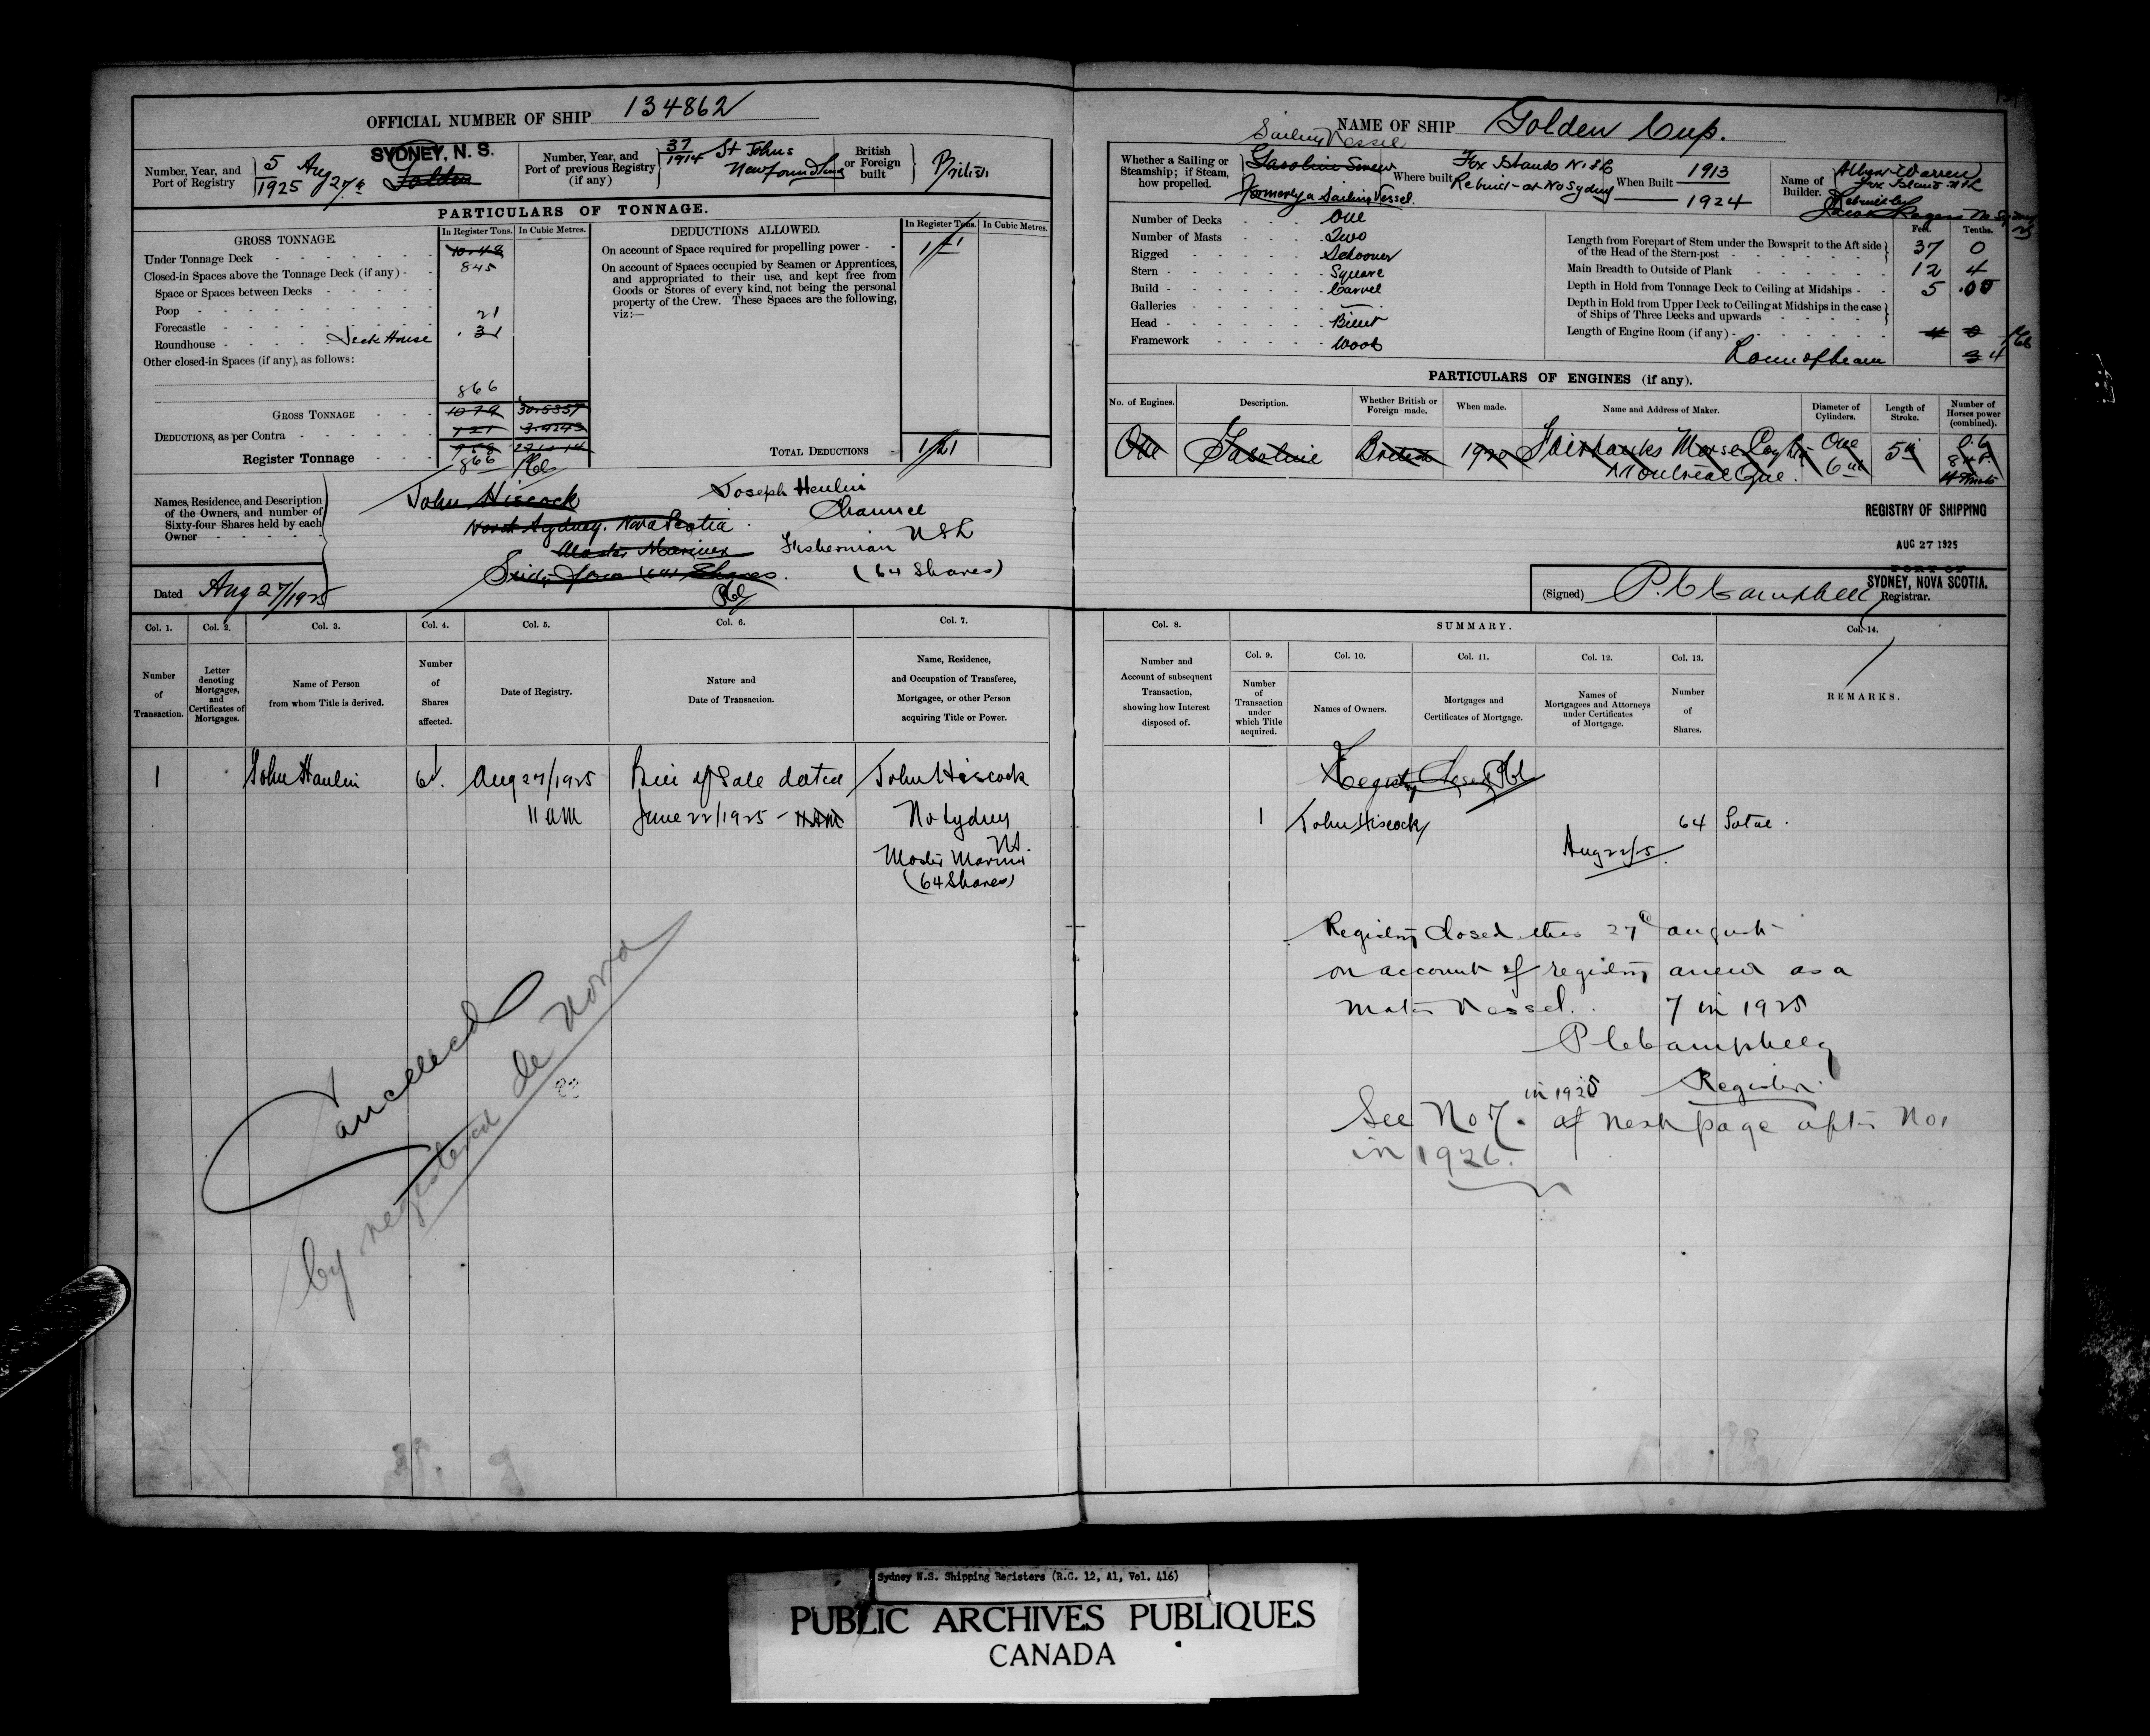 OFFICIAL NUMBER OF SHIP 134862
Number, Year, and
Port of Registry
5 Aug 27th
1925
SYDNEY, N. S.
Number, Year, and
Port of previous Registry
(if any)
37
1914 St Johns
Newfoundland
British
or Foreign
built
British
PARTICULARS OF TONNAGE.
GROSS TONNAGE.
In Register Tons. In Cubic Metres.
Under Tonnage Deck 10.48
845
Closed-in Spaces above the Tonnage Deck (if any)
Space or Spaces between Decks
Poop
21
Forecastle
Roundhouse Deck House .31
Other closed-in Spaces (if any), as follows:
866
GROSS TONNAGE 1079 30.5357
DEDUCTIONS, as per Contra 121 3.4243
Register Tonnage
866
DEDUCTIONS ALLOWED.
In Register Tons. In Cubic Metres.
On account of Space required for propelling power
On account of Spaces occupied by Seamen or Apprentices,
and appropriated to their use, and kept free from
Goods or Stores of every kind, not being the personal
property of the Crew. These Spaces are the following,
viz:—
TOTAL DEDUCTIONS 1/21
Names, Residence, and Description
of the Owners, and number of
Sixty-four Shares held by each
Owner
John Hiscock
North Sydney. Nova Scotia
Master Mariner
Sixty four (64) Shares.
Joseph Henlin
Channel
Fisherman NFL
(64 Shares)
Dated Aug 27/1925
Col. 1. Col. 2. Col. 3. Col. 4. Col. 5. Col. 6. Col. 7.
Number
of
Transaction.
Letter
denoting
Mortgages,
and
Certificates of
Mortgages.
Name of Person
from whom Title is derived.
Number
of
Shares
affected.
Date of Registry.
Nature and
Date of Transaction.
Name, Residence,
and Occupation of Transferee,
Mortgagee, or other Person
acquiring Title or Power.
1 John Hanlin 64 Aug 27/1925 Bill of Sale dated John Hiscock
11 am June 22/1925 - 11 AM No Sydney
NS.
Master Mariner
(64 Shares)
Cancelled
by registered de nova
NAME OF SHIP Golden Cup.
Sailing Vessel
Whether a Sailing or
Steamship; if Steam,
how propelled.
Gasoline Screw
Formerly a Sailing Vessel.
Where built
Fox Islands Nfld
Rebuilt at No Sydney
When Built 1913
1924
Name of
Builder.
Warren
Fox Island Nfld
Rebuilt by
Number of Decks One
Number of Masts Two
Rigged Schooner
Stern Square
Build Carvel
Galleries —
Head Billet
Framework Wood
Feet. Tenths.
Length from Forepart of Stem under the Bowsprit to the Aft side
of the Head of the Stern-post 37 0
Main Breadth to Outside of Plank 12 4
Depth in Hold from Tonnage Deck to Ceiling at Midships 5 .00
Depth in Hold from Upper Deck to Ceiling at Midships in the case
of Ships of Three Decks and upwards
Length of Engine Room (if any) 4 0
Round of beam 3 4
PARTICULARS OF ENGINES (if any).
No. of Engines. Description. Whether British or
Foreign made. When made. Name and Address of Maker. Diameter of
Cylinders. Length of
Stroke. Number of
Horses power
(combined).
One Gasoline British 1920 Fairbanks Morse Coy Ltd One 5in
Montreal Que. 6in
REGISTRY OF SHIPPING
AUG 27 1925
PORT OF
SYDNEY, NOVA SCOTIA.
(Signed) P. C Campbell Registrar.
Col. 8. SUMMARY. Col. 14.
Col. 9. Col. 10. Col. 11. Col. 12. Col. 13.
Number and
Account of subsequent
Transaction,
showing how Interest
disposed of.
Number
of
Transaction
under
which Title
acquired.
Names of Owners.
Mortgages and
Certificates of Mortgage.
Names of
Mortgagees and Attorneys
under Certificates
of Mortgage.
Number
of
Shares.
REMARKS.
Registry Closed
1 John Hiscock 64 Total.
Aug 22/25
Registry Closed this 27th august
on account of registry anew as a
motor Vessel. 7 in 1925
P C Campbell
Registrar
See No 7. in 1925 at next page after No 1
in 1926.
Sydney N.S. Shipping Registers (R.G. 12, A1, Vol. 416)
PUBLIC ARCHIVES PUBLIQUES
CANADA